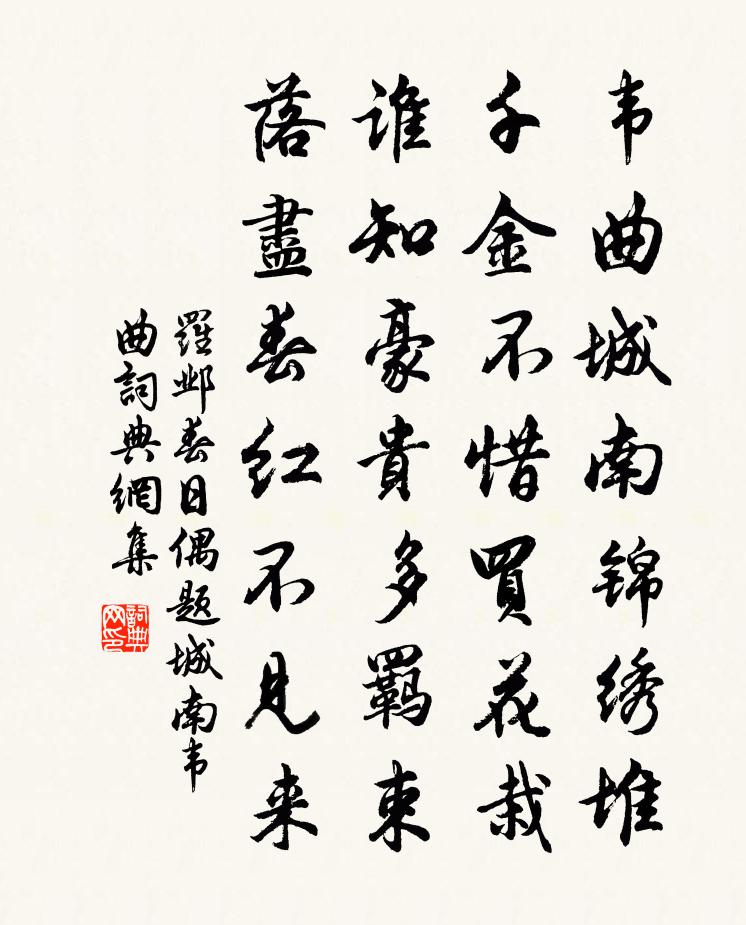 韦曲城南锦绣堆
千金不惜買花栽
谁知豪貴多羁束
落盡春红不見来
羅邺春日偶题城南韦
曲詞典網集
詞典网印